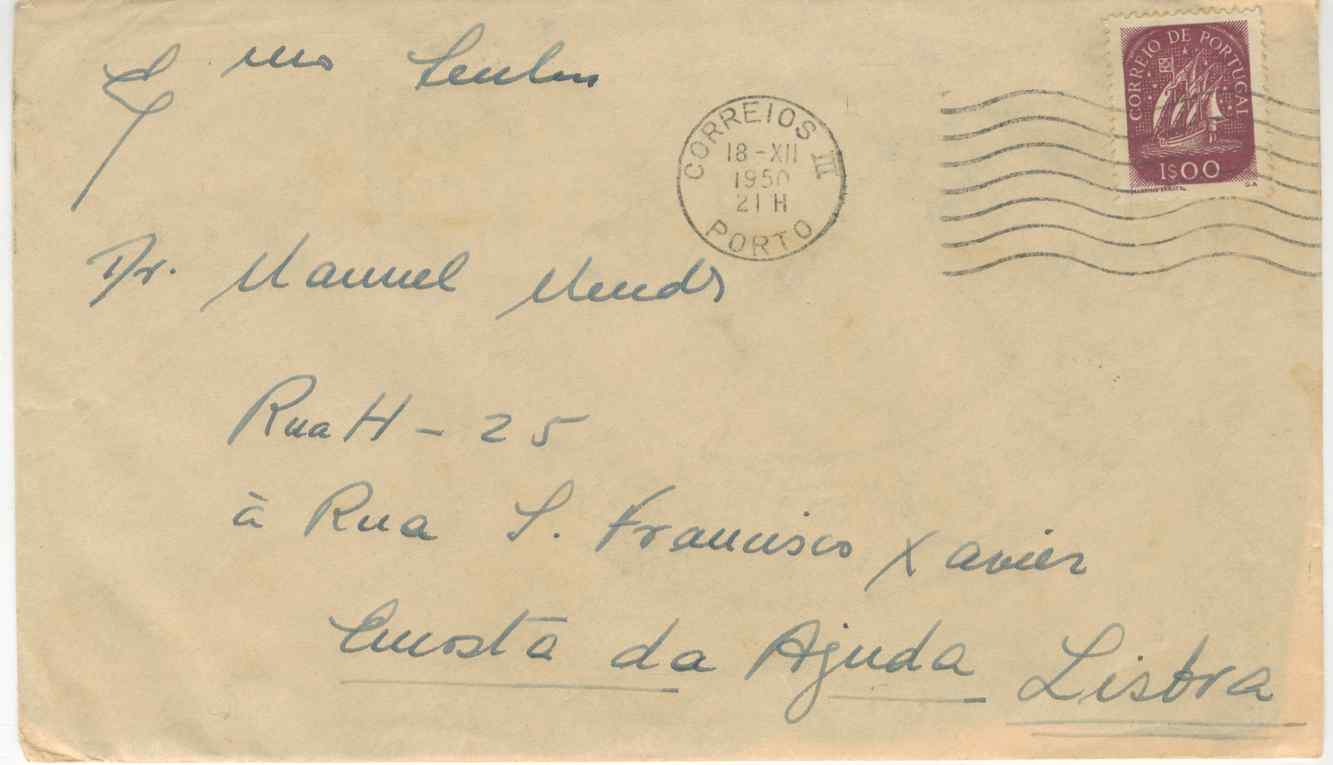 Exmo Senhor
CORREIO DE PORTUGAL
1$00
CORREIOS III
18-XII
1950
21 H
PORTO
Dr. Manuel Mendes
Rua H - 25
à Rua S. Francisco Xavier
Encosta da Ajuda Lisboa